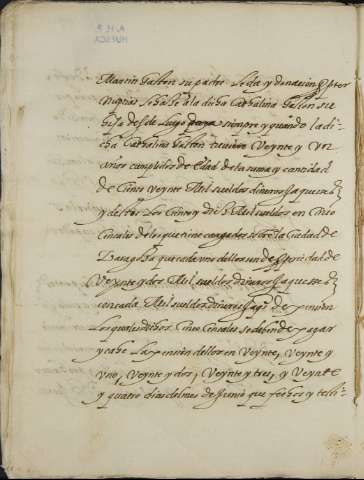 A.H.P.
HUESCA
Martin Gaston su padre le da y donacion propter
nuptias le haze a la dicha Cathalina Gaston su
hija desde luego para siempre y quando la di-
cha Cathalina Gaston tuuiere Veynte y
años cumplidos de Edad de la suma y cantidad
de Ciento Veynte Mil sueldos dineros Jaqueses
y destos Los Ciento y diez Mil sueldos en Cinco
Censales de los que tiene cargados sobre la Ciudad de
Çaragoça que cada vno dellos es de propiedad de
Veynte y dos Mil sueldos dineros Jaqueses
con cada Mil sueldos dineros Jaqs de pension
Los quales dichos Cinco Censales se deben de pagar
y cahe La pension dellos en Veynte, Veynte y
vno, Veynte y dos, Veynte y tres, y Veynte
y quatro dias del mes de Junio que fechos y testi-